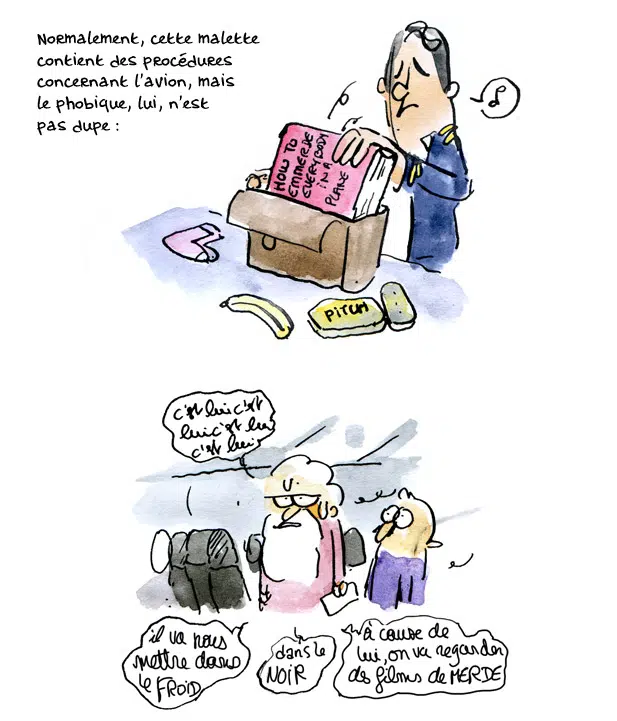 Normalement, cette malette
contient des procédures
concernant l'avion, mais
le phobique, lui, n'est
pas dupe :
HOW TO
EMMERDE
EVERYBODY
IN A
PLANE
PITCH
c'est lui c'est
lui c'est lui
c'est lui
il va nous
mettre dans
le FROID
dans le
NOIR
à cause de
lui, on va regarder
des films de MERDE